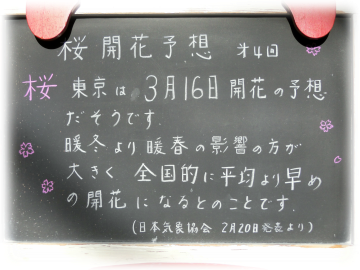 桜開花予想 才4回
桜 東京は3月16日開花の予想
だそうです.
暖冬より暖春の影響の方が
大きく 全国的に平均より早め
の開花になるとのことです.
(日本気象協会 2月20日発表より)